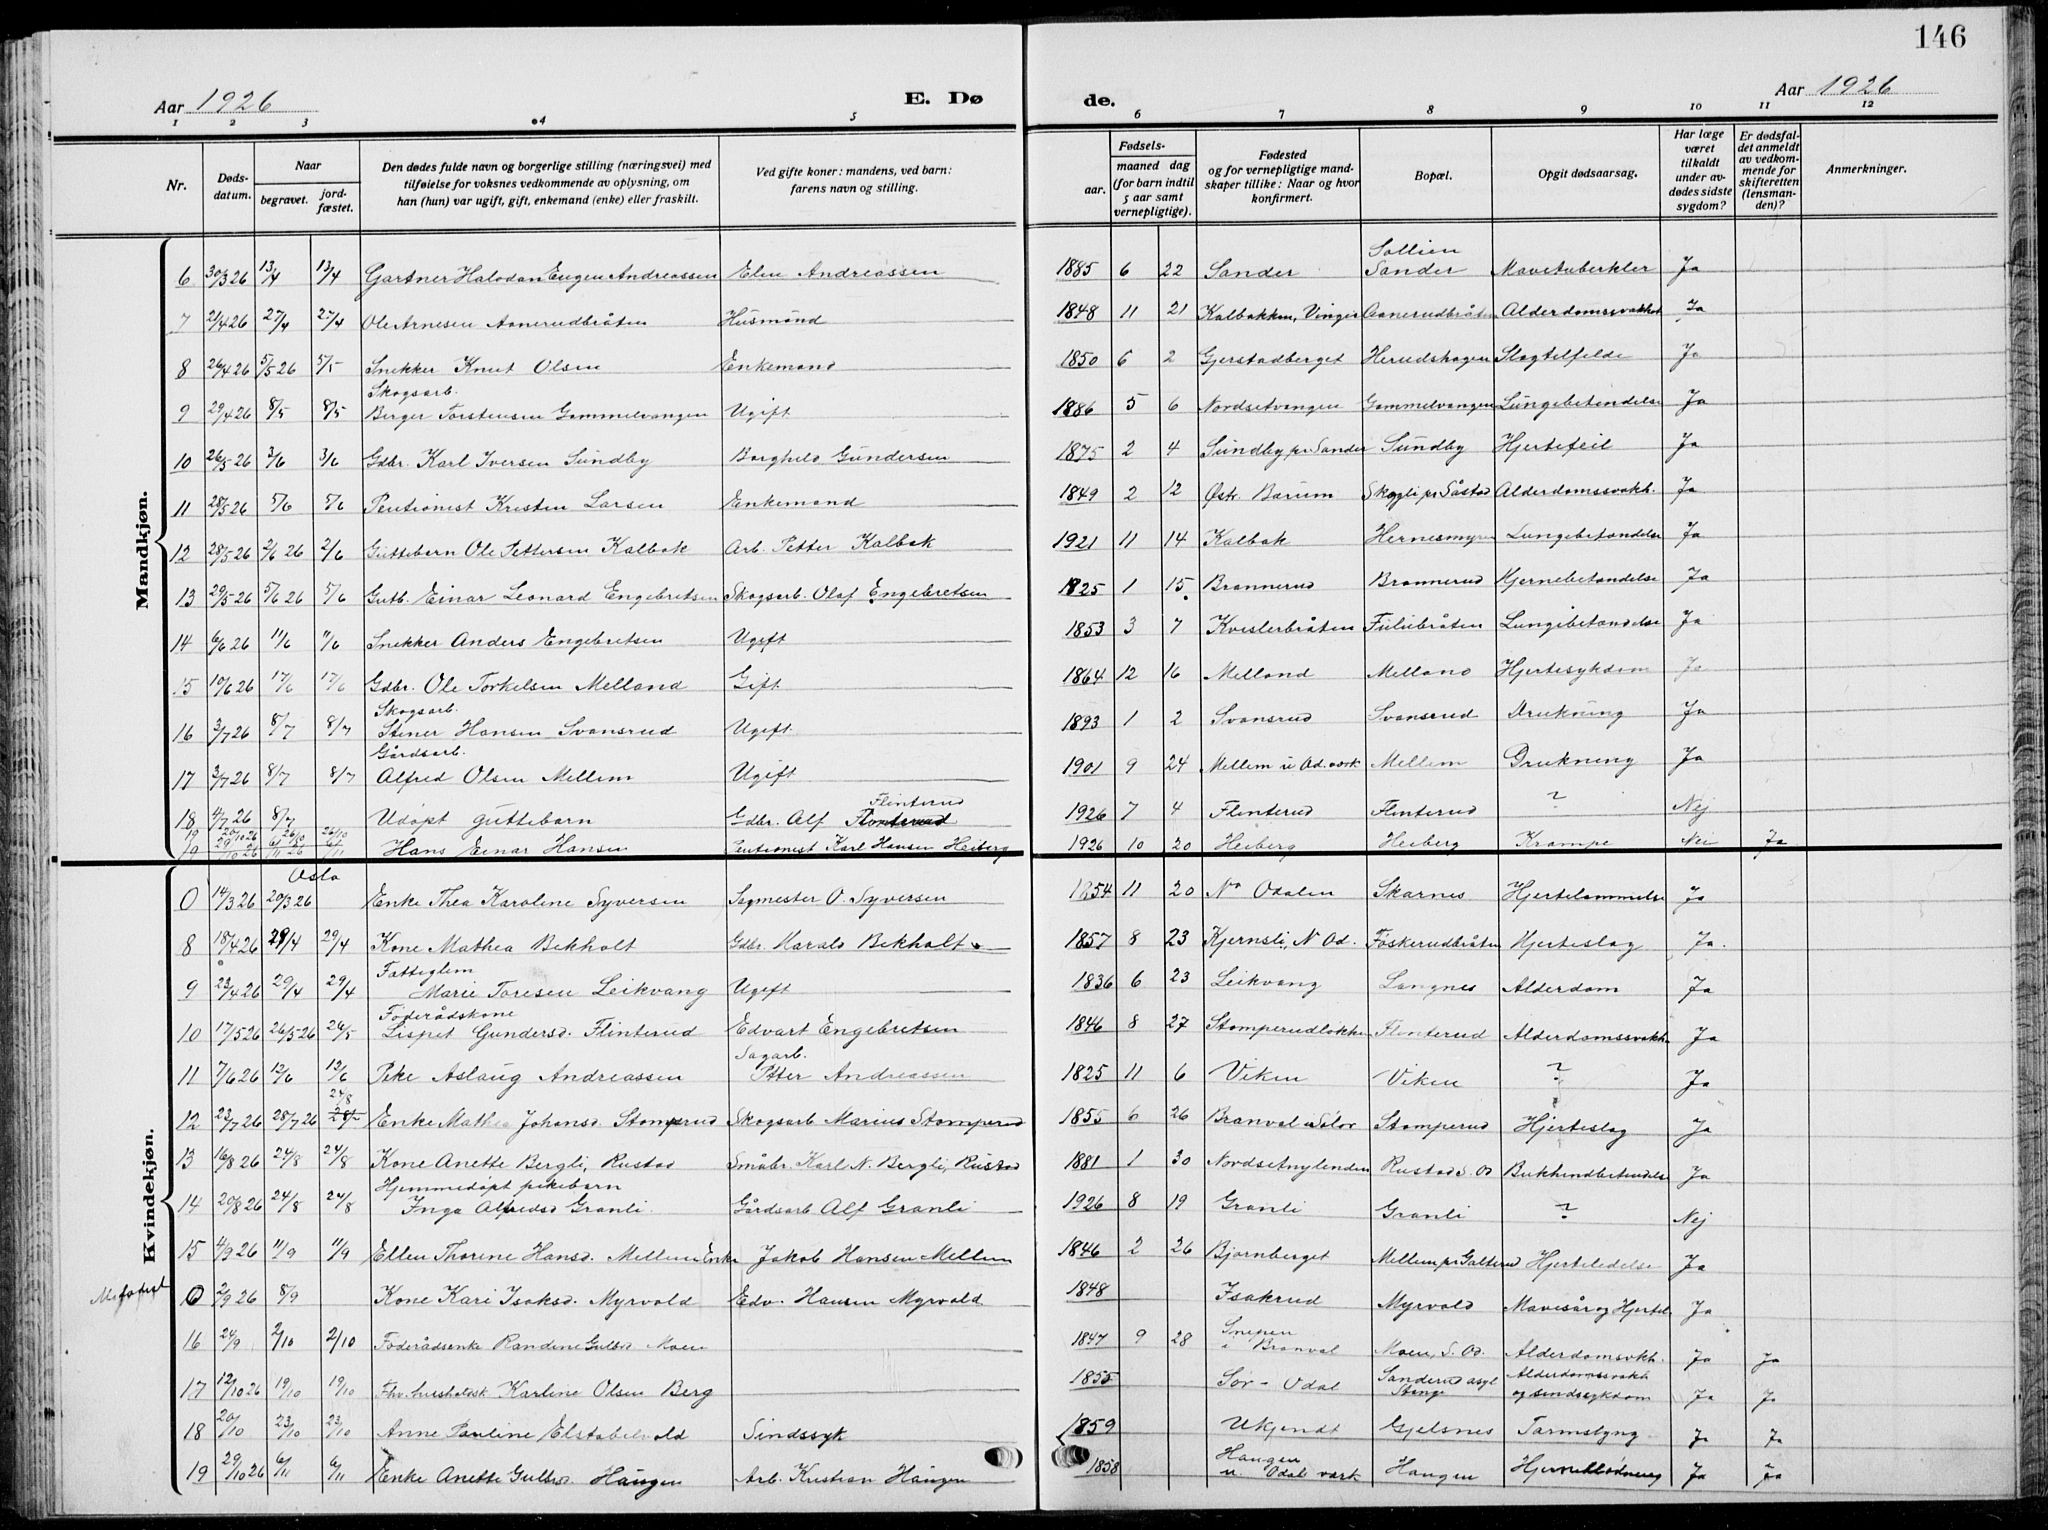 146
Aar 1926
E. Dø
de.
Aar 1926
1 2 3 4 5 6 7 8 9 10 11 12
Nr.
Døds-datum.
Naar
begravet.
jord-fæstet.
Den dødes fulde navn og borgerlige stilling (næringsvei) med tilføielse for voksnes vedkommende av oplysning, om han (hun) var ugift, gift, enkemand (enke) eller fraskilt.
Ved gifte koner: mandens, ved barn: farens navn og stilling.
Fødsels-
aar.
maaned dag (for barn indtil 5 aar samt vernepligtige).
Fødested og for vernepligtige mand-skaper tillike: Naar og hvor konfirmert.
Bopæl.
Opgit dødsaarsag.
Har læge været tilkaldt under av-dødes sidste sygdom?
Er dødsfal-det anmeldt av vedkom-mende for skifteretten (lensman-den)?
Anmerkninger.
Mandkjøn.
6 30/3 26 13/4 13/4 Gartner Halvdan Eugen Andreassen Elen Andreassen 1885 6 22 Sander Sollien Sander Mavetuberkler Ja
7 21/4 26 27/4 27/4 Ole Arnesen Aanerudbråten Husmand 1848 11 21 Kalbakken, Vinger Aanerudbråten Alderdomssvakhet Ja
8 26/4 26 5/5 26 5/5 Snekker Knut Olsen Enkemand 1850 6 2 Gjerstadberget Herudshagen Slagtilfelde Ja
Skogsarb.
9 29/4 26 8/5 8/5 Berger Torstensen Gammelvangen Ugift 1886 5 6 Nordsetvangen Gammelvangen Lungebetendelse Ja
10 26/5 26 3/6 3/6 Gdbr. Karl Iversen Sundby Borghild Gundersen 1875 2 4 Sundby pr Sander Sundby Hjertefeil Ja
11 28/5 26 5/6 5/6 Pentionist Kristen Larsen Enkemand 1849 2 12 Østr. Bærum Skogli pr Såstad Alderdomssvakh. Ja
12 28/5 26 2/6 26 2/6 Guttebarn Ole Pettersen Kalbak Arb. Petter Kalbak 1921 11 14 Kalbak Hernesmyren Lungebetændelse Ja
13 29/5 26 5/6 26 5/6 Gutb. Einar Leonard Engebretsen Skogsarb. Olaf Engebretsen 1825 1 15 Brannerud Brannerud Hjernebetændelse Ja
14 6/6 26 11/6 11/6 Snekker Anders Engebretsen Ugift 1853 3 7 Kveslerbråten Fulubråten Lungebetændelse Ja
15 10/6 26 17/6 17/6 Gdbr. Ole Torkelsen Melland Gift 1864 12 16 Melland Melland Hjertesykdom Ja
Skogsarb.
16 3/7 26 8/7 8/7 Stener Hansen Svansrud Ugift 1893 1 2 Svansrud Svansrud Drukning Ja
Gårdsarb.
17 3/7 26 8/7 8/7 Alfred Olsen Mellem Ugift 1901 9 24 Mellem i Od. verk Mellem Drukning Ja
18 4/7 26 8/7 Udøpt guttebarn Gdbr. Alf Flinterud 1926 7 4 Flinterud Flinterud ? Nej
19 20/10 26 26/10 26/10 Hans Einar Hansen Pentionist Karl Hansen Heiberg 1926 10 20 Heiberg Heiberg Krampe Nei Ja
Kvindekjøn.
Oslo
0 14/3 26 20/3 26 Enke Thea Karoline Syversen Sagmester O. Syversen 1854 11 20 No Odalen Skarnes Hjertelammelse Ja
8 18/4 26 29/4 29/4 Kone Mathea Bekholt Gdbr. Harald Bekholt 1857 8 23 Kjernsli, N Od. Føskerudbråten Hjerteslag Ja.
Fattiglem
9 23/4 26 29/4 29/4 Marie Toresen Leikvang Ugift 1836 6 23 Leikvang Langnes Alderdom Ja
Føderådskone
10 17/5 26 26/5 26 26/5 Lispet Gundersd. Flinterud Edvart Engebretsen 1846 8 27 Stomperudløkken Flinterud Alderdomssvakh. Ja
Sagarb.
11 7/6 26 12/6 12/6 Pike Aslaug Andreassen Petter Andreassen 1825 11 6 Viken Viken ? Ja
24/8
12 23/7 26 28/7 26 28/7 Enke Mathea Johansd. Stomperud Skogsarb Marius Stomperud 1855 6 26 Branval i Solør Stomperud Hjerteslag Ja
13 16/8 26 24/8 24/8 Kone Anette Bergli, Rustad Småbr. Karl N. Bergli, Rustad 1881 1 30 Nordsetnylenden Rustad S. Od Bukhindbetendelse Ja
Hjemmedøpt pikebarn
14 20/8 26 24/8 24/8 Inga Alfredsd Granli Gårdsarb Alf Granli 1926 8 19 Granli Granli ? Nej
15 4/9 26 11/9 11/9 Ellen Thorine Hansd. Mellem Enke Jakob Hansen Mellem 1846 2 26 Bjørnberget Mellem pr Galterud Hjerteledelse Ja
0 2/9 26 8/9 Kone Kari Isaksd. Myrvold Edv. Hansen Myrvold 1848 Isakrud Myrvold Mavesår og Hjertel. Ja
16 24/9 2/10 2/10 Føderådsenke Randine Gulbsd Moen 1847 9 28 Snepen i Branval Moen, S. Od. Alderdomsvkh. Ja Ja
17 12/10 26 19/10 19/10 Fhv. husholdsk Karline Olsen Berg 1855 Sør-Odal Sanderud asyl Stange Alderdomssvakh og sindssykdom Ja Ja
18 20/10 23/10 23/10 Anne Pauline Elstabelvold Sindssyk 1859 Ukjendt Gjelsnes Tarmslyng Ja Ja
19 29/10 26 6/11 6/11 Enke Anette Gulbsd. Haugen Arb. Kristian Haugen 1858 Haugen u. Odals værk Haugen Hjerneblødning Ja Ja